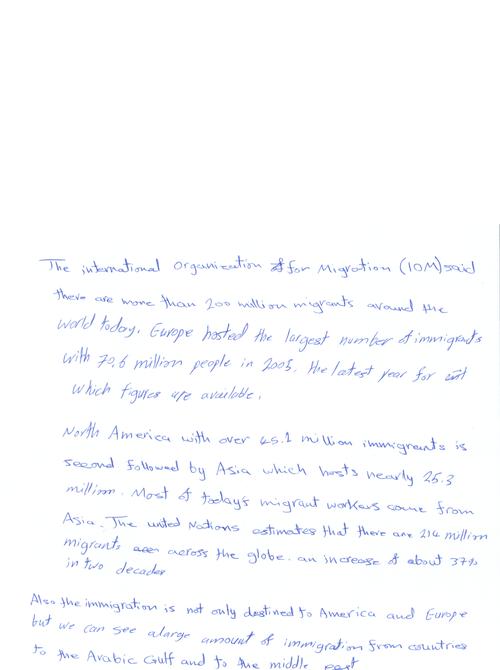 The international Organization for Migration (IOM) said
there are more than 200 million migrants around the
world today. Europe hosted the largest number of immigrants
with 70.6 million people in 2005, the latest year for
which figures are available.
North America with over 45.1 million immigrants is
second followed by Asia which hosts nearly 25.3
million. Most of today's migrant workers come from
Asia. The united Nations estimates that there are 214 million
migrants across the globe. an increase of about 37%
in two decades
Also the immigration is not only destined to America and Europe
but we can see alarge amount of immigration from countries
to the Arabic Gulf and to the middle east